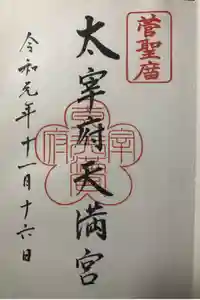 菅聖廟
太宰府天満宮
令和元年十一月十六日